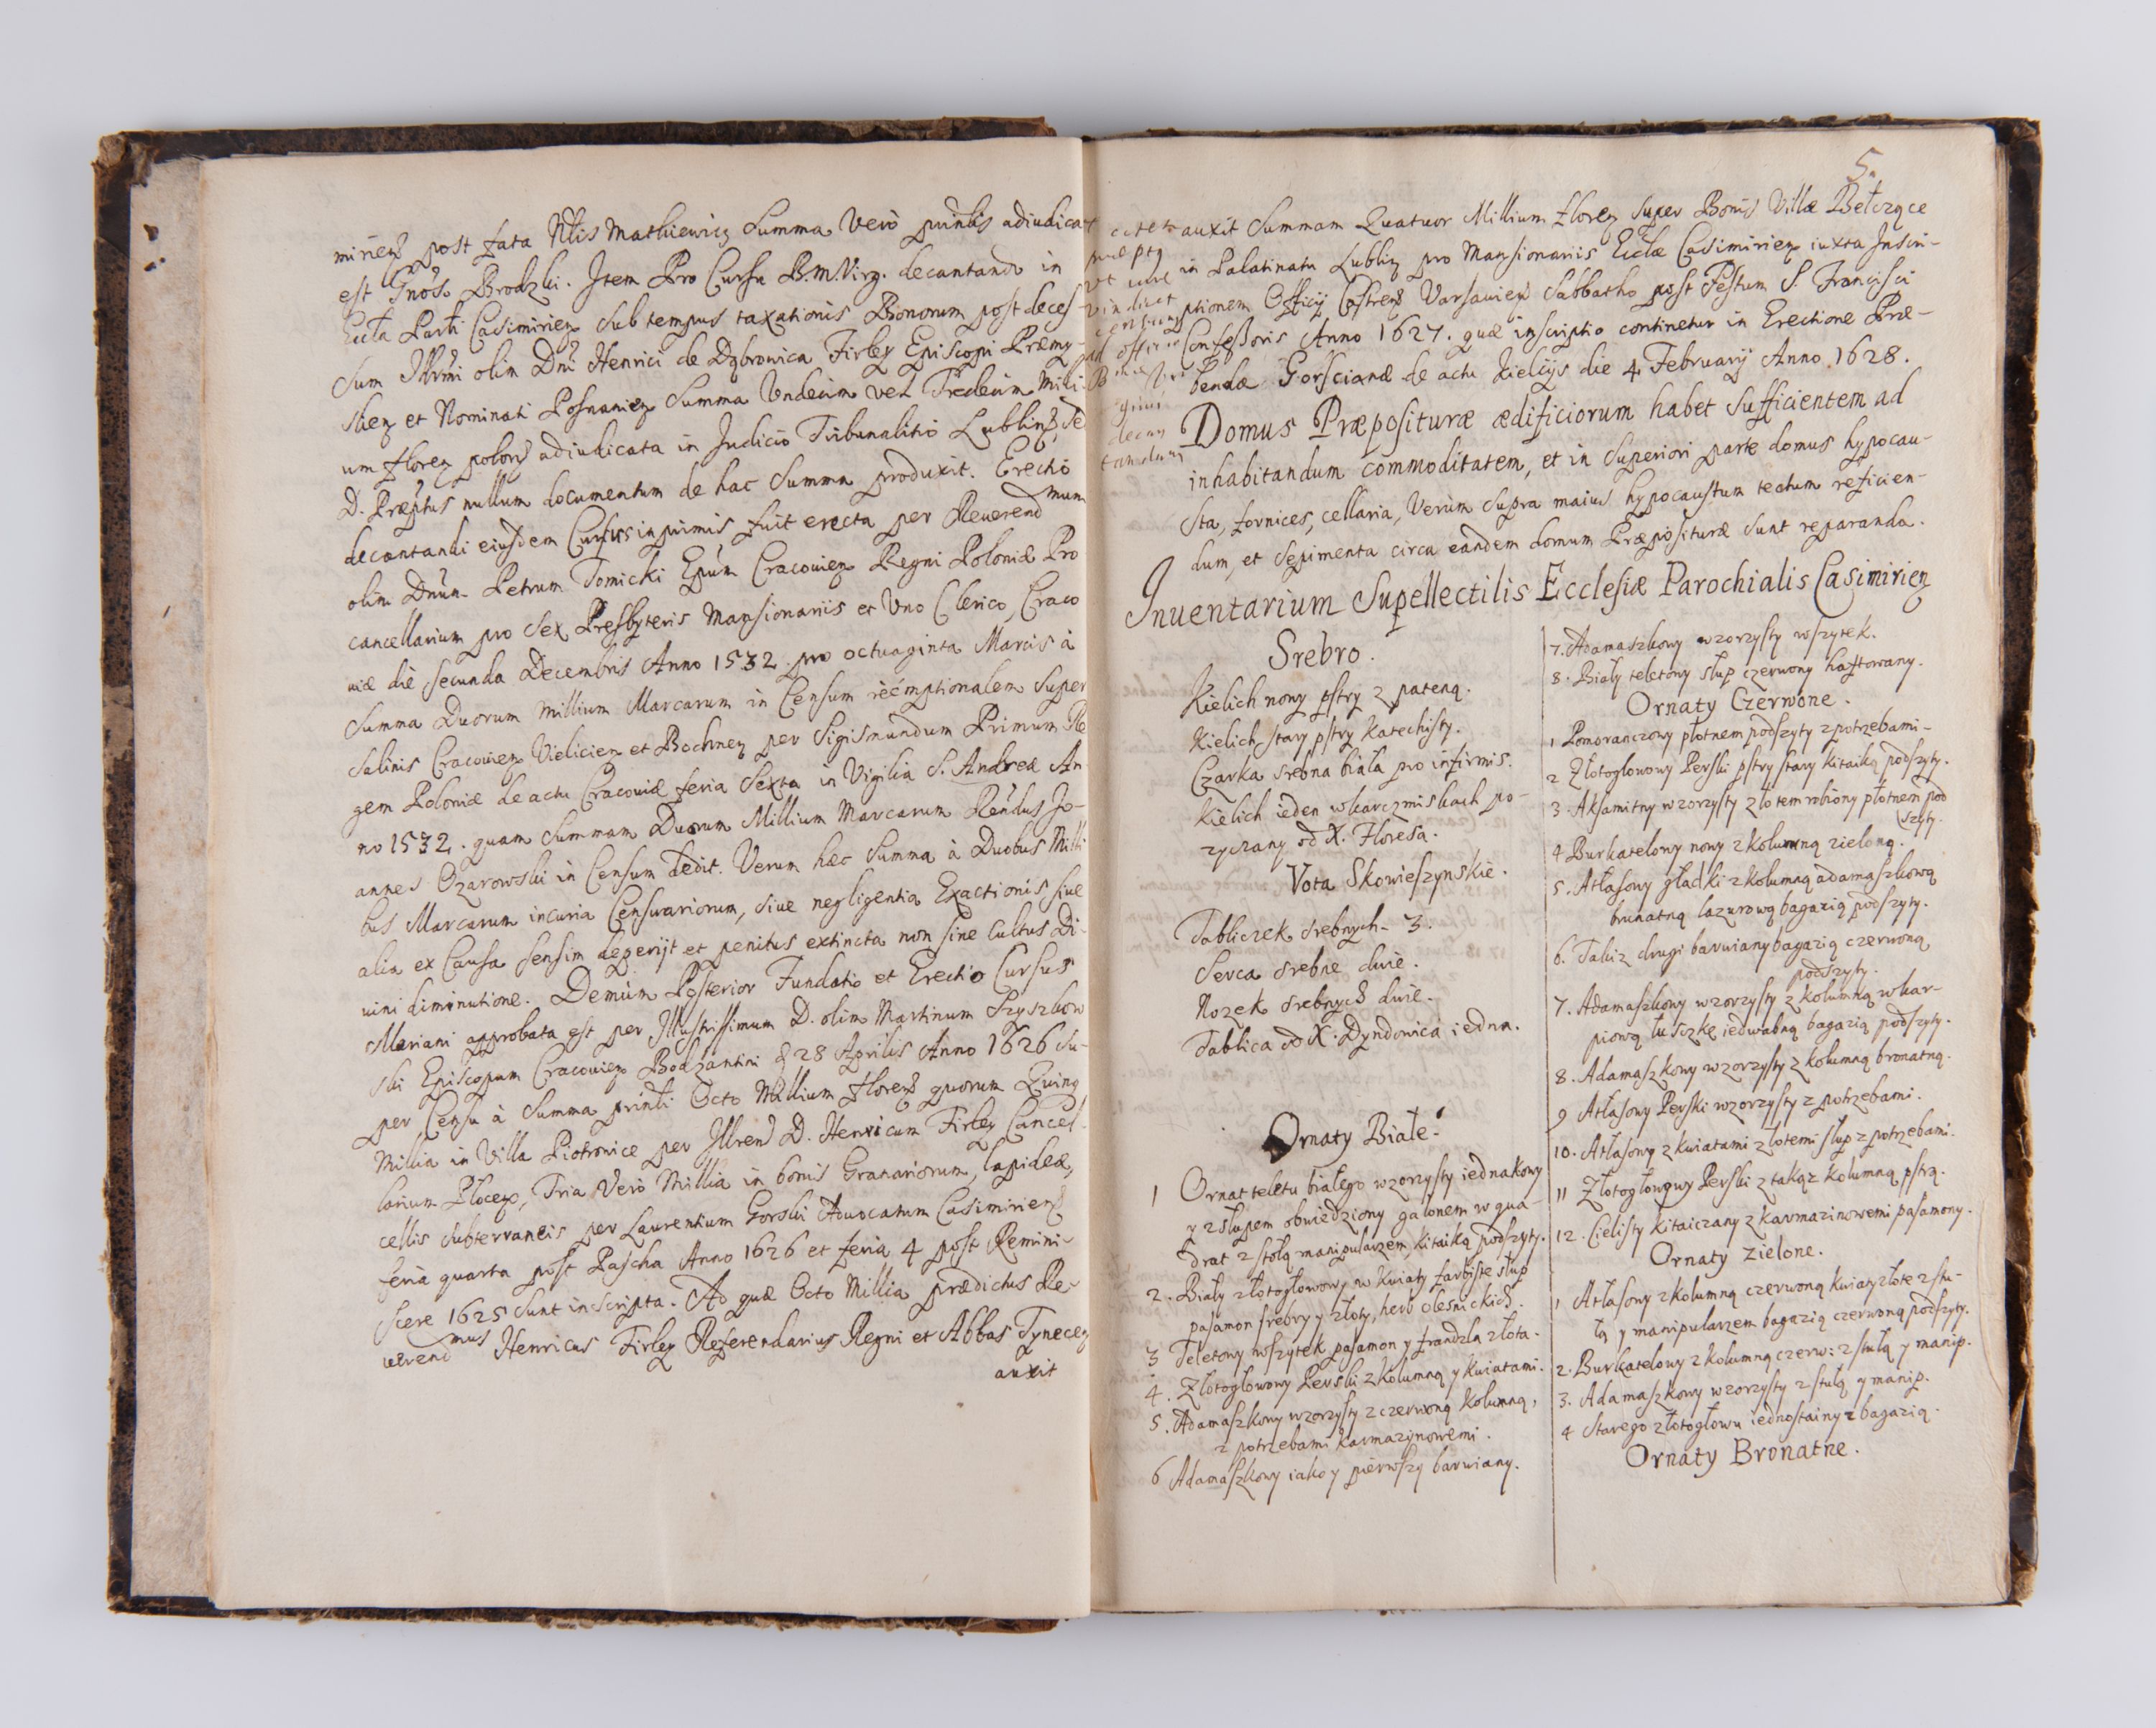 mirien̄ post fata Nłis Mathiewicz Summa Verò prīnlis adiudica
est Gn̄oso Brodzki. Item Pro Cursu B.M.Virg. decantando in
Eccła Parłi Casimirien sub tempus taxationis Bonorum post deces
sum Illr̄mi olim Dn̄i Henrici de Dąbrowica Firley Episcopi Præmy-
slien et Nominati Posnanien Summa Undecim vel Tredecim Milli
um floren polon̄ adiudicata in Judicio Tribunalitio Lublin̄, se
D. Præptus nullum documentum de hac Summa produxit. Erectio
decantandi eiusdem Cursus inprimis fuit erecta per Reuerendmum
olim Dn̄um Petrum Tomicki Ep̄um Cracouien Regni Poloniæ Pro
cancellarium pro sex Presbyteris Mansionariis et Uno Clerico, Craco
uiæ die secunda Decembris Anno 1532 pro octuaginta Marcis à
Summa Duorum millium Marcarum in Censum reémptionalem super
Salinis Cracouien Vielicien et Bochnen per Sigismundum Primum Re
gem Poloniæ de actu Cracouiæ feria Sexta in Vigilia S. Andreæ An
no 1532. quam Summam Duorum Millium Marcarum Rendus Jo-
annes Ozarowski in Censum dedit. Verum hæc Summa à Duobus Milli
bus Marcarum incuria Censuariorum, siue negligentia Exactionis siue
alia ex Causa sensim deperijt et penitus extincta non sine Cultus Di-
uini diminutione. Demùm Posterior Fundatio et Erectio Cursus
Mariani approbata est per Illustrissimum D. olim Martinum Szyszkow
ski Episcopum Cracouien Bodzantini 28 Aprilis Anno 1626 su-
per Censu à Summa prinłi Octo Millium floren̄ quorum Quinq
Millia in Villa Piotrowice per Illrend D. Henricum Firley Cancel-
larium Plocen, Tria Verò Millia in bonis Granariorum, lapideæ,
cellis subterraneis per Laurentium Gorski Aduocatum Casimirien̄
feria quarta post Pascha Anno 1626 et feria 4 post Remini-
scere 1625 sunt inscripta. Ad quæ Octo Millia prædictus Re-
uerendmus Henricus Firley Referendarius Regni et Abbas Tynecen
auxit
5.
auxit Summam Quatuor Millium floren super Bonis Villæ Bełczące
in Palatinatu Lublin pro Mansionariis Eccłæ Casimirien iuxta Inscri-
ptionem Officij Castren̄ Varsauien̄ Sabbatho post Festum S. Francisci
Confessoris Anno 1627. quæ inscriptio continetur in Erectione Præ-
bendæ Gorscianæ de actu Kielcijs die 4 February Anno 1628.
Domus Præpositura ædificiorum habet Sufficientem ad
inhabitandum commoditatem, et in Superiori parte domus hypocau-
sta, fornices, cellaria, Verùm supra maius hypocaustum tectum reficien-
dum, et sepimenta circa eandem domum Præposituræ sunt reparanda.
Inuentarium Supellectilis Ecclesiæ Parochialis Casimirien
Srebro.
Kielich nowy pstry z pateną.
Kielich stary pstry Katechisty.
Czarka srebna biała pro infirmis.
Kielich ieden w karczmiskach po-
zyczany od X. Floresa.
Vota Skowieszynskie.
Tabliczek srebnych 3.
Serca srebne dwie.
Nozek srebnych dwie.
Tablica od X. Dyndowica iedna.
Ornaty Białe.
1 Ornat teletu białego wzorzysty iednakowy
y z słupem obwiedziony galonem w qua-
drat z stołą manipularzem kitaiką podszyty.
2. Biały złotogłowowy w kwiaty farbiste słup
pasamon srebry y złoty, herb Olesnickich.
3 Teletowy wszytek pasamon y frandzla złota.
4. Złotogłowowy Perski z kolumną y kwiatami.
5. Adamaszkowy wzorzysty z czerwoną kolumną,
z potrzebami karmazynowemi.
6 Adamaszkowy iako y pierwszy barwiany.
7. Adamaszkowy wzorzysty wszytek.
8. Biały teletowy słup czerwony haftowany.
Ornaty Czerwone.
1 Pomoranczowy płotnem podszyty z potrzebami-
2 Złotogłowowy Perski pstry stary kitaiką podszyty.
3. Aksamitny wzorzysty złotem robiony płotnem pod
szyty.
4 Burkatelowy nowy z kolumną zieloną.
5. Atłasowy gładki z kolumną adamaszkową
brunatną lazurową bagazią podszyty.
6. Takiz drugi barwiany bagazią czerwoną
podszyty.
7. Adamaszkowy wzorzysty z kolumną w kar-
piową łuszczkę iedwabną bagazią podszyty.
8. Adamaszkowy wzorzysty z kolumną bronatną.
9 Atłasowy Perski wzorzysty z potrzebami.
10. Atłasowy z kwiatami złotemi słup z potrzebami.
11 Złotogłowowy Perski z takąz kolumną pstrą.
12. Cielisty kitaiczany z karmazinowemi pasamony.
Ornaty Zielone.
1 Atłasowy z kolumną czerwoną kwiaty złote z stu-
łą y manipularzem bagazią czerwoną podszyty.
2. Burkatelowy z kolumną czerw: z stułą y manip.
3. Adamaszkowy wzorzysty z stułą y manip.
4 Starego złotogłowu iednostainy z bagazią.
Ornaty Bronatne.